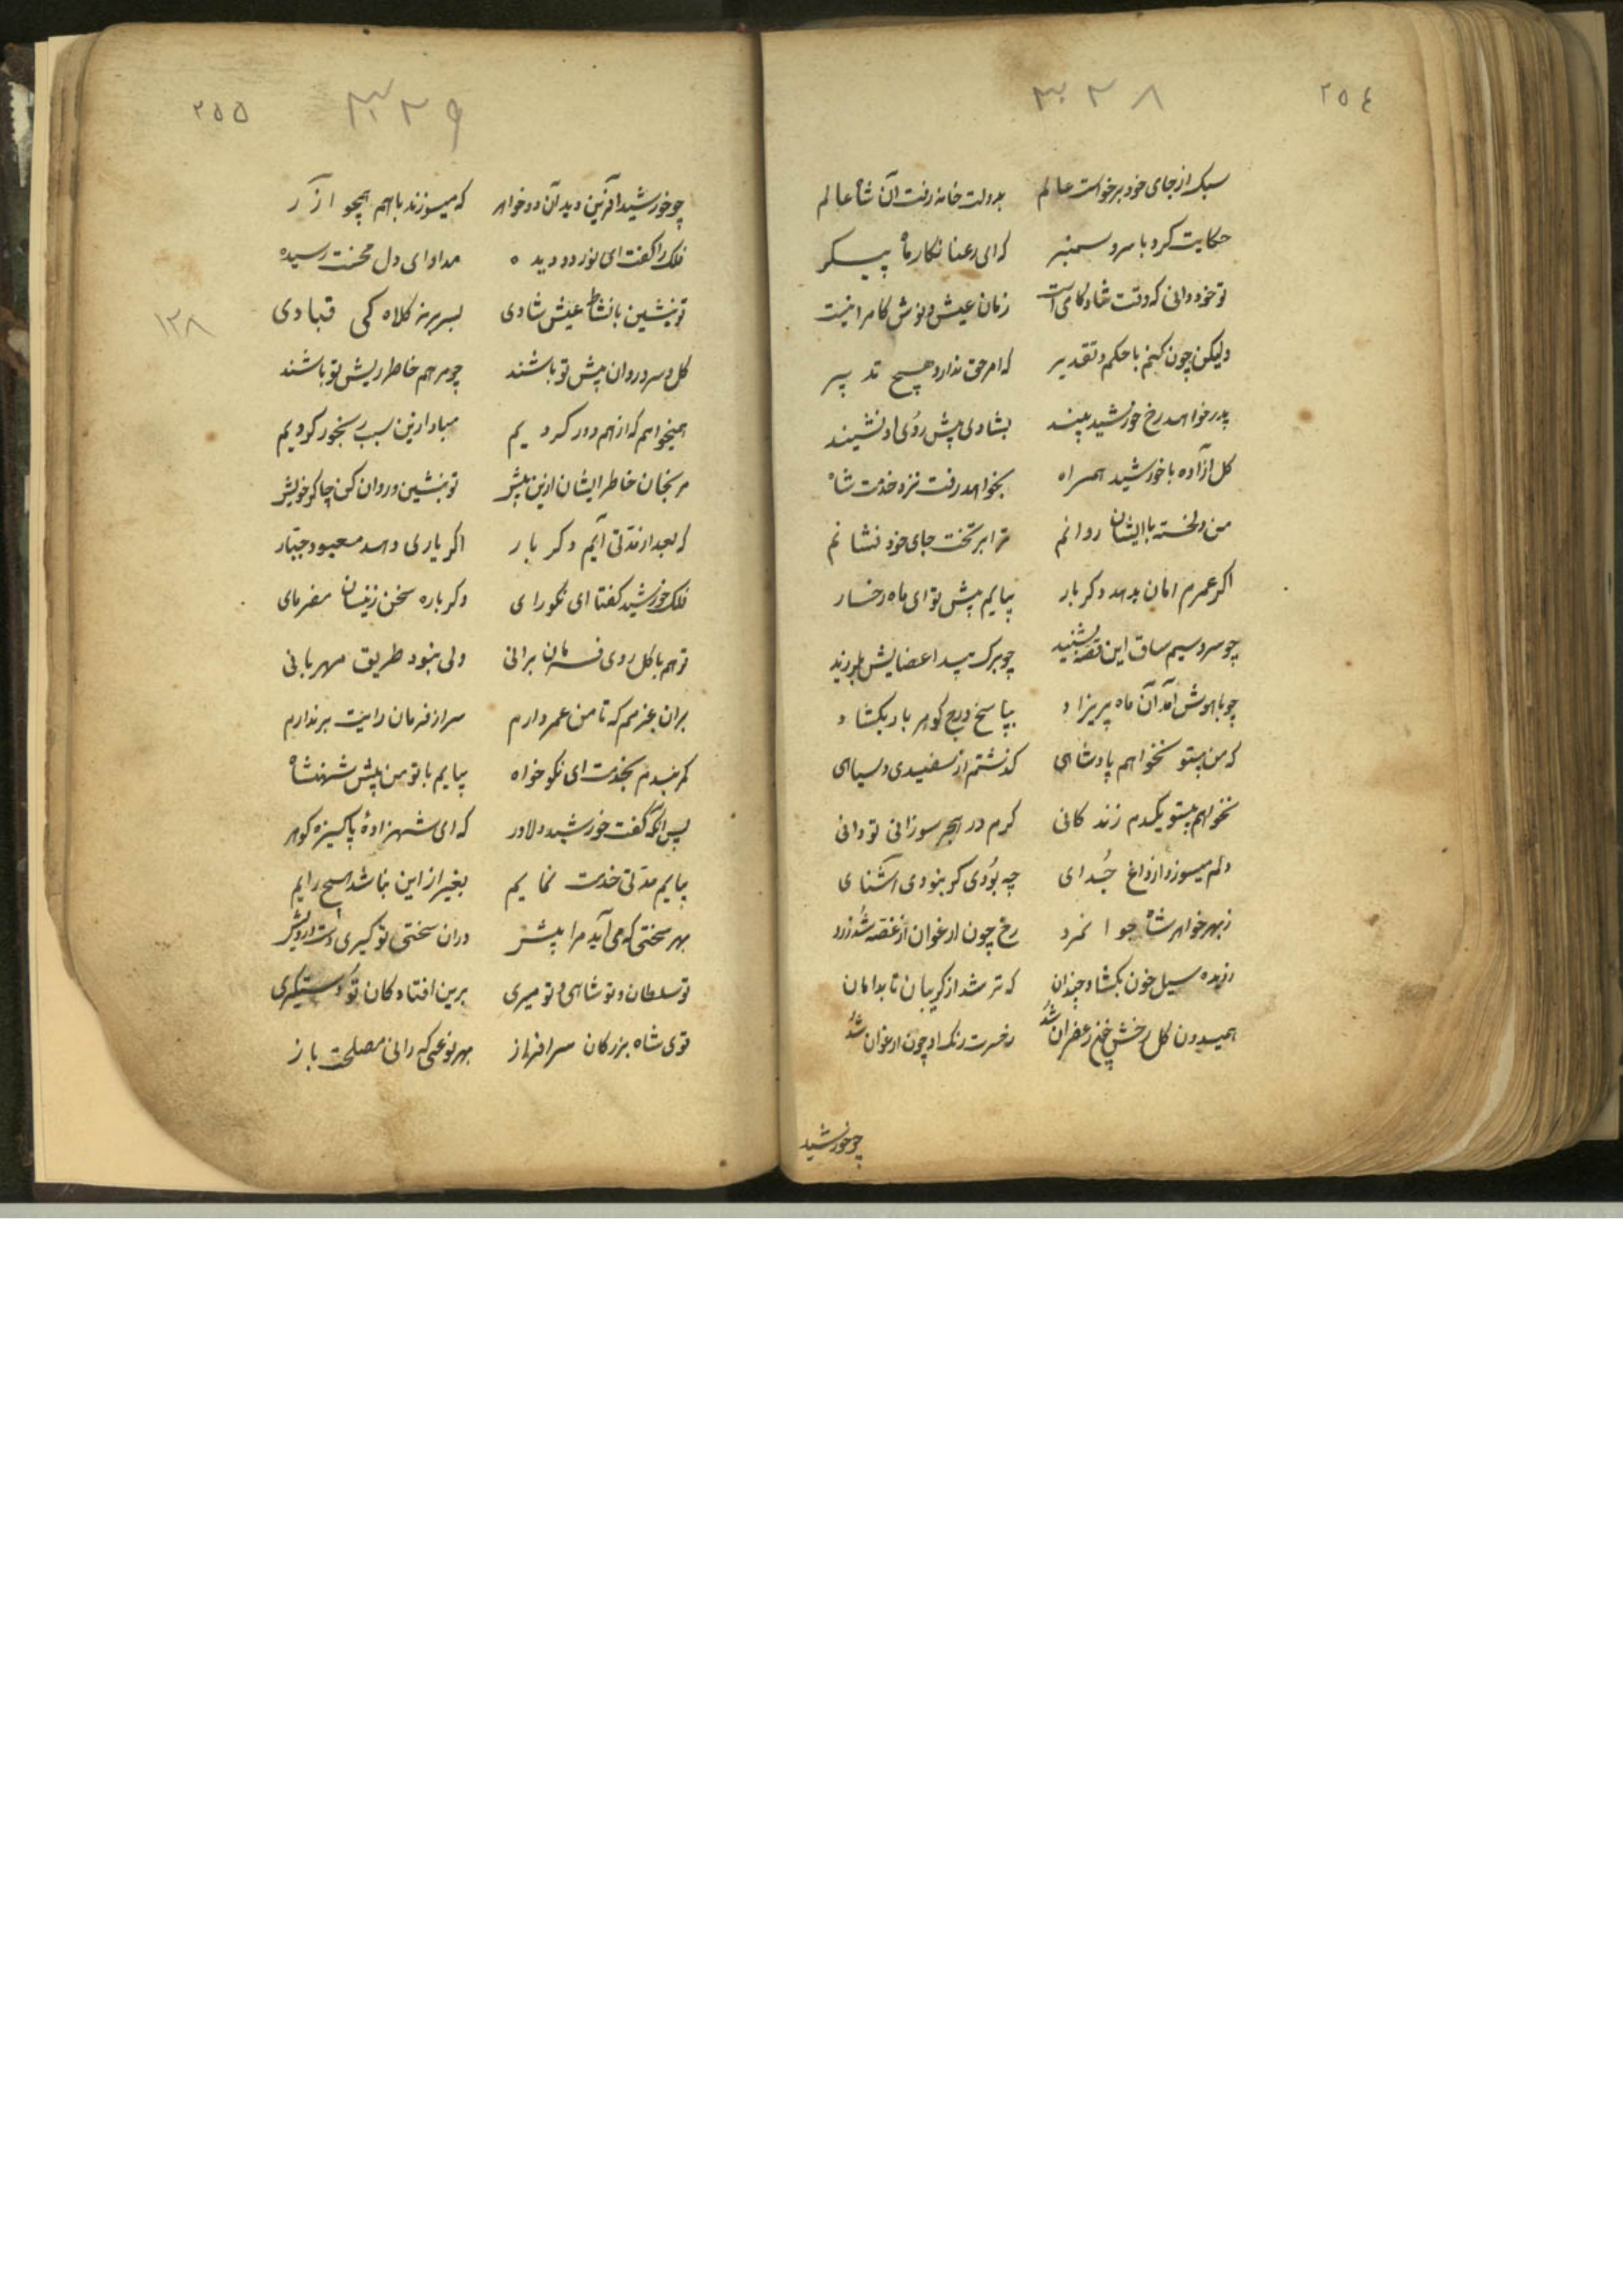 ٢٥٤
٣٣٨
سبک از جای خود برخواست عالم بدولت خانه رفت آن شاه عالم
حکایت کرد با سرو سمنبر که ای رعنا نکار ماه پیکر
تو خود دانی که وقت شادکامی است زمان عیش و نوش کامرانیست
ولیکن چون کنم با حکم و تقدیر که امر حق ندارد هیچ تدبیر
پدر خواهد رخ خورشید بیند بشادی پیش روی او نشیند
کل آزاده با خورشید همراه بخواهد رفت نزد خدمت شاه
من دلخسته با ایشان روانم ترا بر تخت جای خود نشانم
اکر عمرم امان بدهد دکر بار بیایم پیش تو ای ماه رخسار
چو سرو سیم ساق این قصه بشنید چو برک بید اعضایش بلرزید
چو با هوش آمد آن ماه پریزاد بپاسخ درج کوهر بار بکشاد
که من بیتو نخواهم پادشاهی کذشتم از سفیدی و سیاهی
نخواهم بیتو یکدم زندکانی کرم در هجر سوزانی تو دانی
دلم میسوزد از داغ جُدای چه بُودی کر بنودی آشنای
ز بهر خواهر شاه جوانمرد رخ چون ارغوان از غصه شُد زرد
ز دیده سیل خون بکشاد چندان که تر شد از کریبان تا بدامان
همیدون کل رخش زعفران شُد ز حسرت رنک او چون ارغوان شُد
چو خورشید
٢٥٥
٣٣٩
چو خورشید آفرین دید آن دو خواهر که میسوزند با هم همچو آزر
فلک را کفت ای نور دو دیده مداوای دل محنت رسیده
تو بنشین با نشاط عیش شادی بسر بر نه کلاه کی قبادی
١٣٨
کل و سرو روان پیش تو باشند چو مرهم خاطر ریش تو باشند
همیخواهم که از هم دور کردیم مبادا زین سبب رنجور کردیم
مرنجان خاطر ایشان ازین بیش تو بنشین و روان کن چاکر خویش
که بعد از مدتی آیم دکر بار اکر یاری دهد معبود جبّار
فلک خورشید کفتا ای نکورای دکر باره سخن زینسان مفرمای
تو هم با کل روی فرمان برانی ولی نبود طریق مهربانی
بران عزمم که تا من عمر دارم سر از فرمان رایت بر ندارم
کمر بندم بخدمت ای نکو خواه بیایم با تو من پیش شهنشاه
پس آنکه کفت خورشید دلاور که ای شهزادهٔ پاکیزه کوهر
بیایم مدتی خدمت نمایم بغیر از این نباشد هیچ رایم
بهر سختی که می آید مرا پیش دران سختی تو کیری دست درویش
تو سلطان و تو شاهی و تو میری برین افتادکان تو دستکیری
توی شاه بزرکان سرافراز بهر نوعی که رانی مصلحت باز